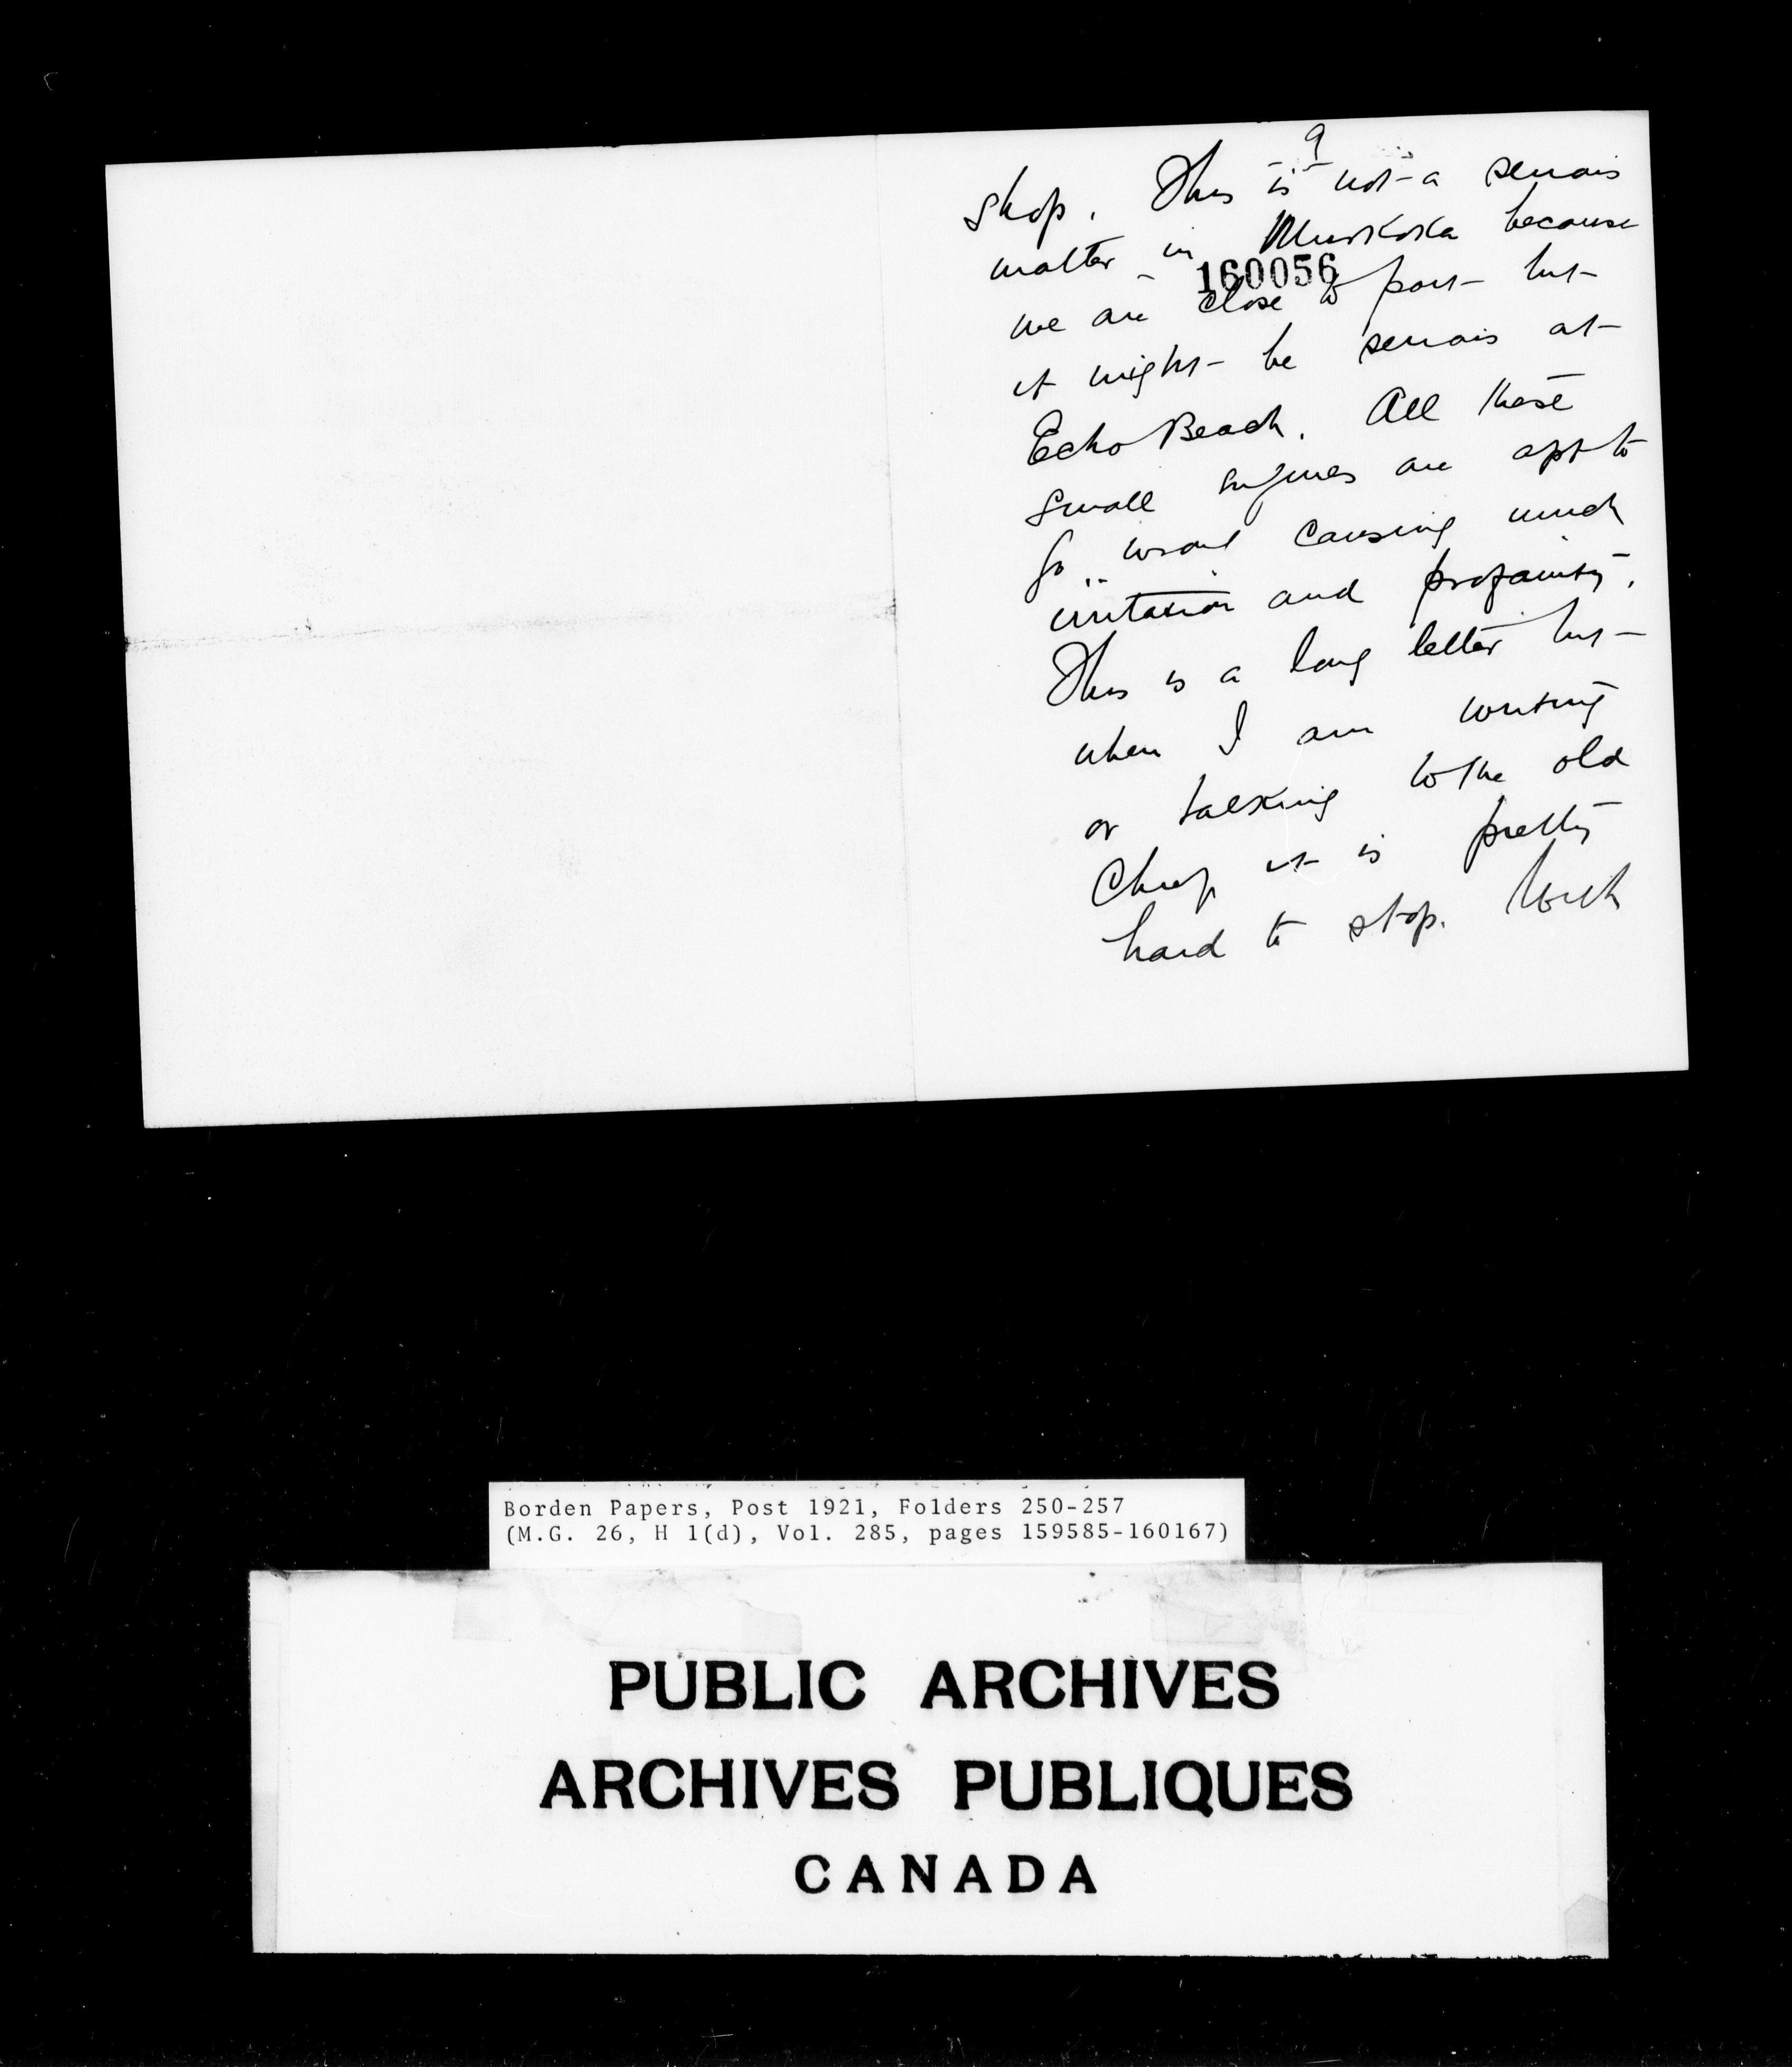 9
shop. This is not a serious
matter in Muskoka because
160056
we are close to port but
it might be serious at
Echo Beach. All these
small engines are apt to
go wrong causing much
irritation and profanity.
This is a long letter but
when I am writing
or talking to the old
Chief it is pretty
hard to stop. With
Borden Papers, Post 1921, Folders 250-257
(M.G. 26, H 1(d), Vol. 285, pages 159585-160167)
PUBLIC ARCHIVES
ARCHIVES PUBLIQUES
CANADA